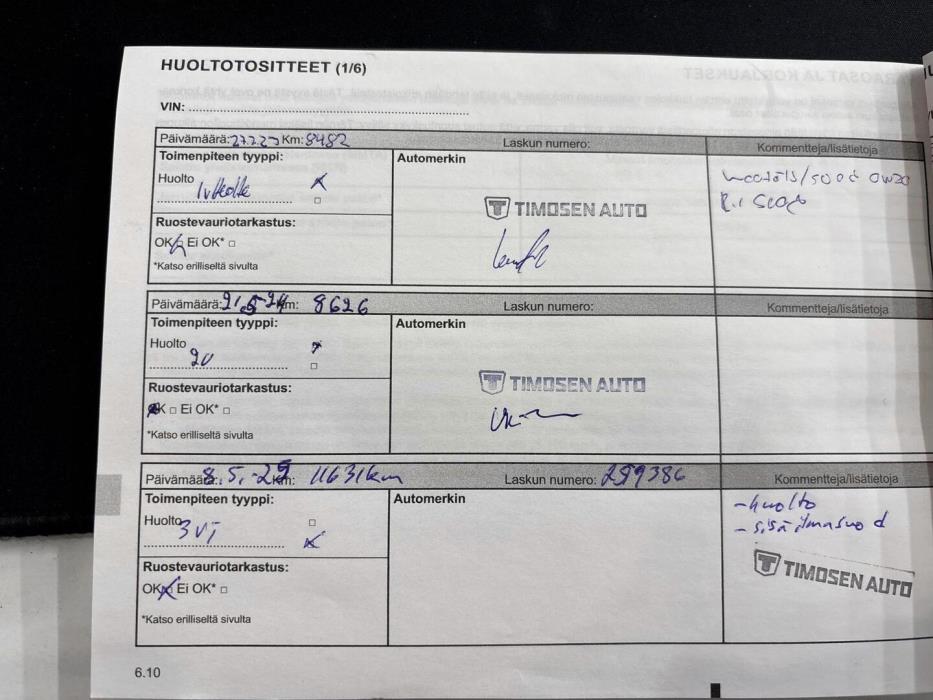 HUOLTOTOSITTEET (1/6)
VIN:
Päivämäärä: Km: 8482 Laskun numero: Kommentteja/lisätietoja
Toimenpiteen tyyppi: Automerkin
Huolto
TIMOSEN AUTO
Ruostevauriotarkastus:
OK Ei OK*
*Katso erilliseltä sivulta
Päivämäärä: 21.5-24 Km: 8626 Laskun numero: Kommentteja/lisätietoja
Toimenpiteen tyyppi: Automerkin
Huolto
2V
TIMOSEN AUTO
Ruostevauriotarkastus:
OK Ei OK*
*Katso erilliseltä sivulta
Päivämäärä: 8.5.-25 Km: 11631km Laskun numero: 259386 Kommentteja/lisätietoja
Toimenpiteen tyyppi: Automerkin
-huolto
Huolto
3VT
-sisäilmasuod
TIMOSEN AUTO
Ruostevauriotarkastus:
OK Ei OK*
*Katso erilliseltä sivulta
6.10